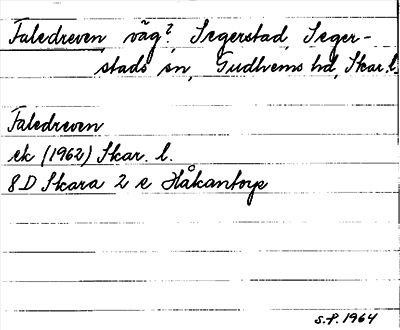 Faledreven, väg?, Segerstad, Seger-
stads sn, Gudhems hd, Skar. l.
Faledreven
ek (1962) Skar. l.
8D Skara 2 e Håkantorp
S.F. 1964